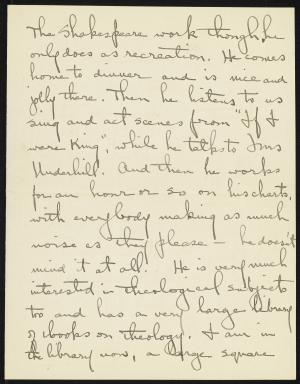 The Shakespeare work though, he
only does as recreation. He comes
home to dinner and is nice and
jolly there. Then he listens to us
sing and act scenes from "If I
were King", while he talks to Mrs
Underhill. And then he works
for an hour or so on his charts,
with everybody making as much
noise as they please — he doesn't
mind it at all. He is very much
interested in theological subjects
too and has a very large library
of books on theology. I am in
the library now, a large square